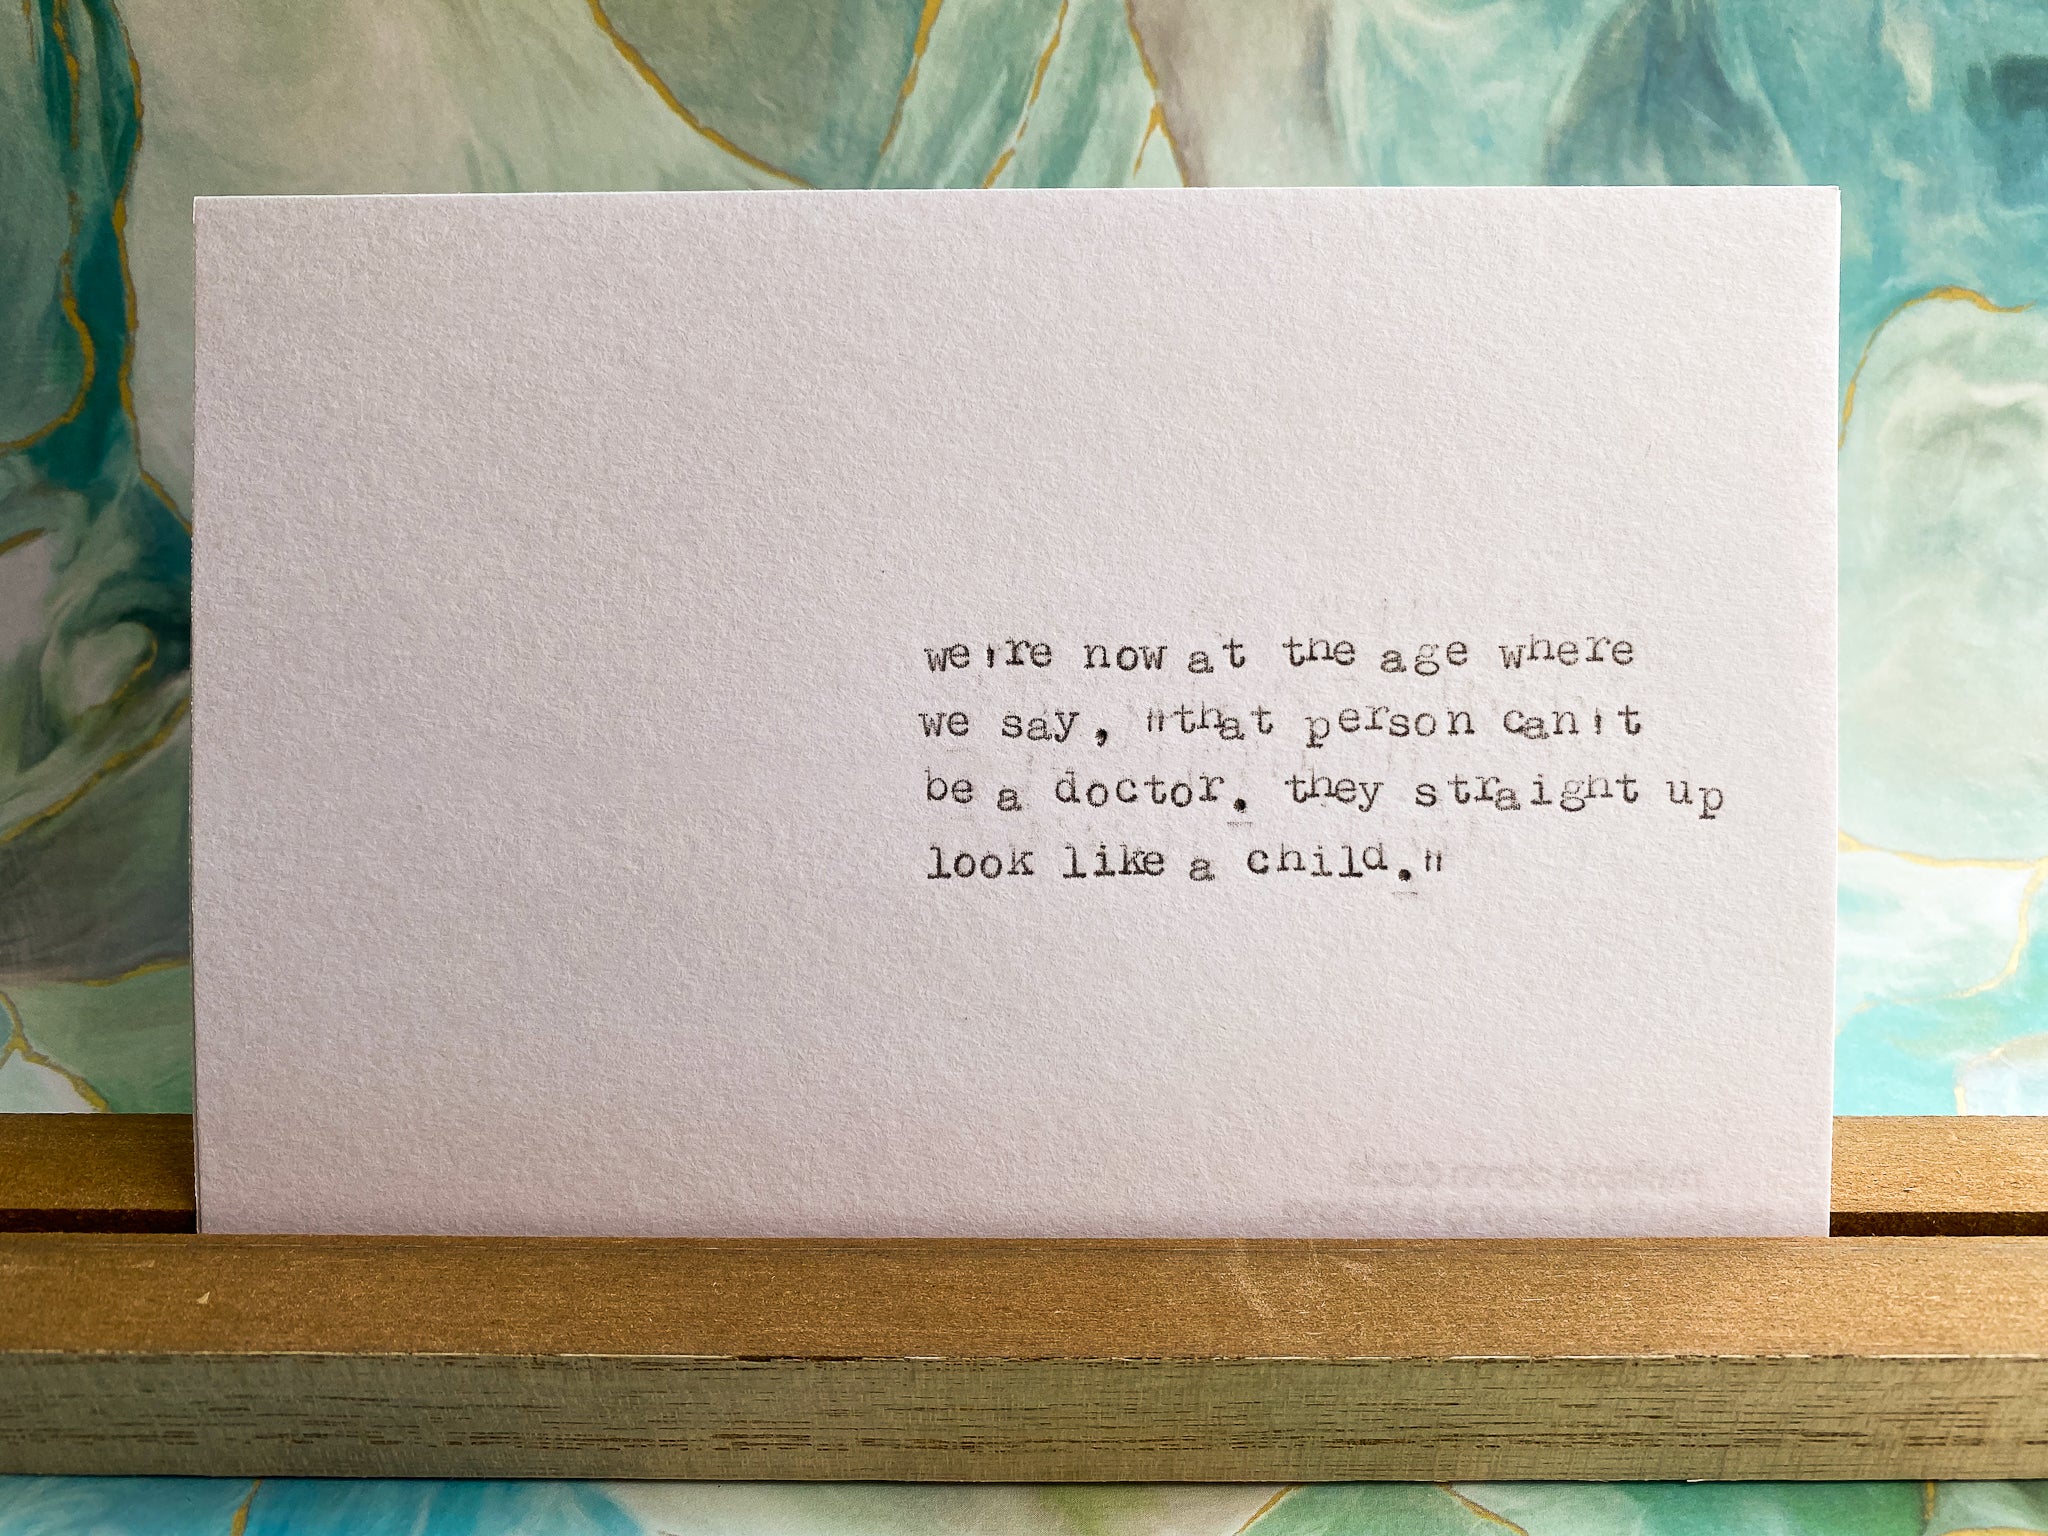 we're now at the age where
we say, "that person can't
be a doctor. they straight up
look like a child."